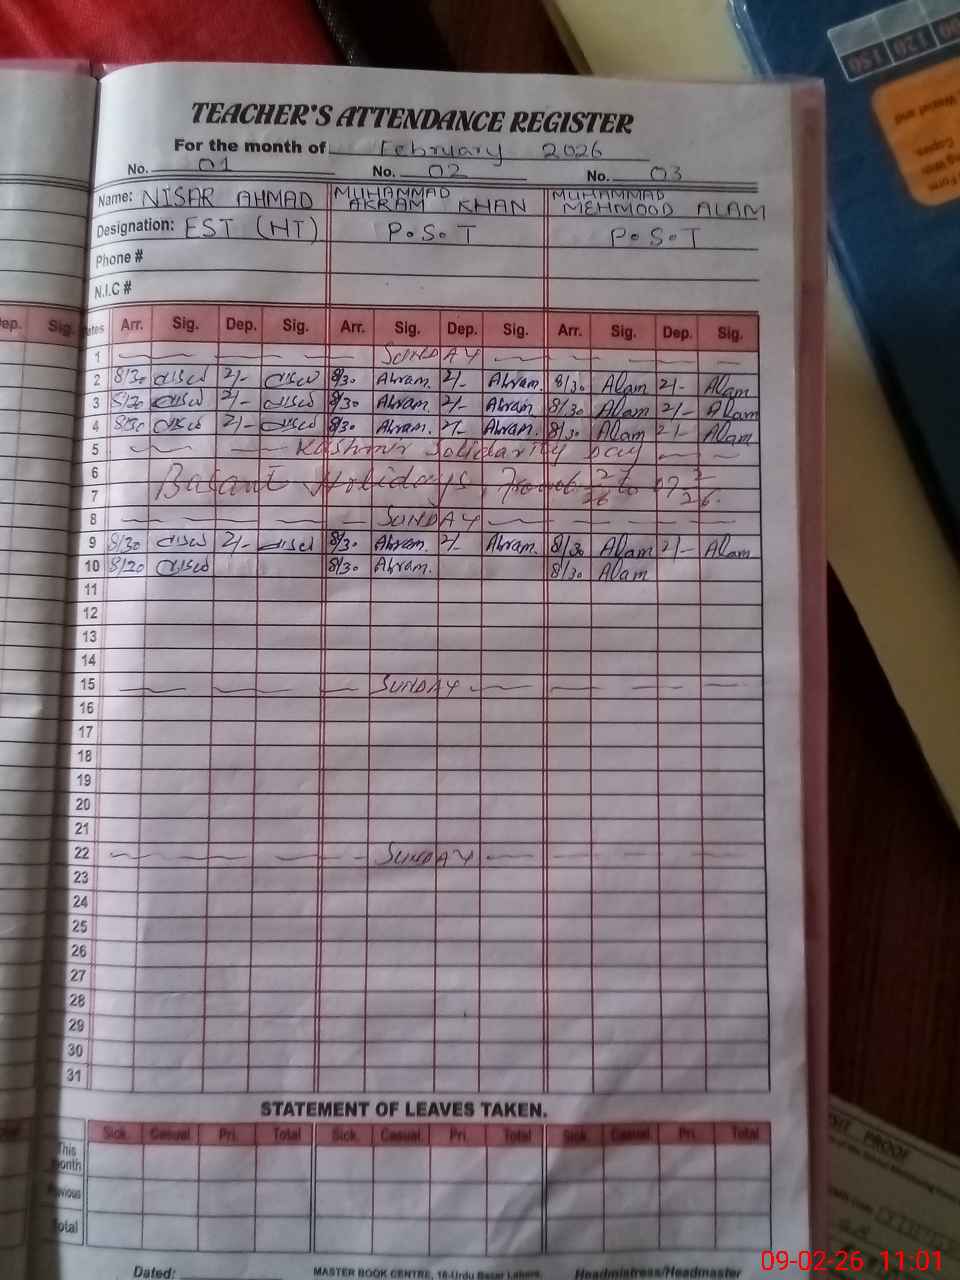 TEACHER'S ATTENDANCE REGISTER
For the month of February 2026
No. 01 No. 02 No. 03
Name: NISAR AHMAD MUHAMMAD AKRAM KHAN MUHAMMAD MEHMOOD ALAM
Designation: EST (HT) P.S.T P.S.T
Phone #
N.I.C #
ep. Sig. ates Arr. Sig. Dep. Sig. Arr. Sig. Dep. Sig. Arr. Sig. Dep. Sig.
1 SUNDAY
2 8/30 2/- 8/30 Akram. 2/- Akram. 8/30 Alam 2/- Alam
3 8/30 2/- 8/30 Akram. 2/- Akram. 8/30 Alam 2/- Alam
4 8/30 2/- 8/30 Akram. 2/- Akram. 8/30 Alam 2/- Alam
5 Kashmir Solidarity Day
6 Basant Holidays From
7
8 SUNDAY
9 8/30 2/- 8/30 Akram. 2/- Akram. 8/30 Alam 2/- Alam
10 8/30 8/30 Akram. 8/30 Alam
11
12
13
14
15 SUNDAY
16
17
18
19
20
21
22 SUNDAY
23
24
25
26
27
28
29
30
31
STATEMENT OF LEAVES TAKEN.
Sick. Casual. Pri. Total Sick. Casual. Pri. Total Sick. Casual. Pri. Total
This
month
Total
Dated: MASTER BOOK CENTRE, 16-Urdu Bazar Lahore. Headmistress/Headmaster
150 120
Copies
PROOF
09-02-26 11:01